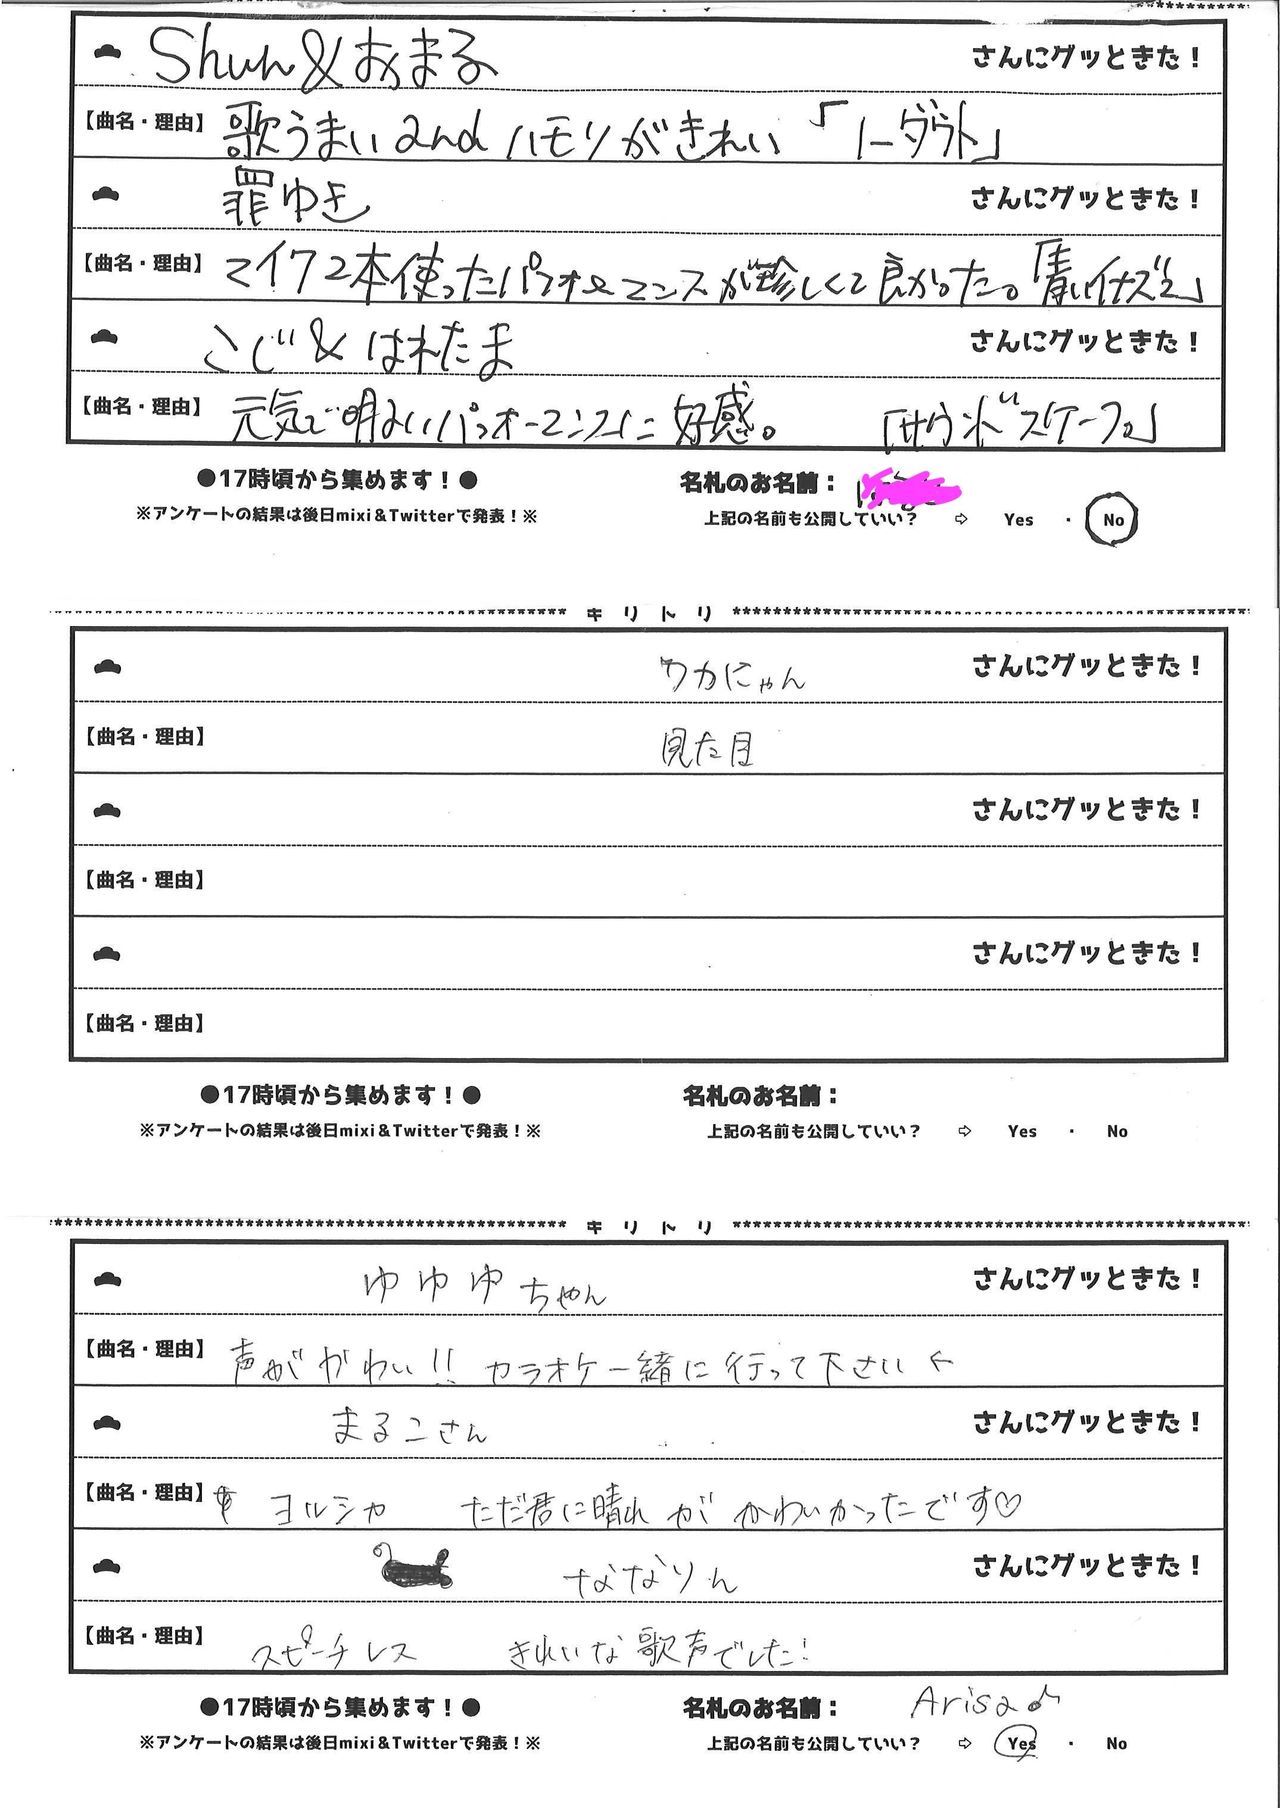 Shun&おまる さんにグッときた！
【曲名・理由】 歌うまい 2nd ハモリがきれい 「ノーダウト」
罪ゆき さんにグッときた！
【曲名・理由】 マイク2本使ったパフォーマンスが珍しくて良かった。「青いイナズマ」
こじ&はれたま さんにグッときた！
【曲名・理由】 元気で明るいパフォーマンスに好感。 「サウンドスケープ」
●17時頃から集めます！● 名札のお名前：
※アンケートの結果は後日mixi＆Twitterで発表！※ 上記の名前も公開していい？ ⇨ Yes ・ No
キリトリ
ワカにゃん さんにグッときた！
【曲名・理由】 見た目
さんにグッときた！
【曲名・理由】
さんにグッときた！
【曲名・理由】
●17時頃から集めます！● 名札のお名前：
※アンケートの結果は後日mixi＆Twitterで発表！※ 上記の名前も公開していい？ ⇨ Yes ・ No
キリトリ
ゆゆゆちゃん さんにグッときた！
【曲名・理由】 声がかわいい!! カラオケ一緒に行って下さい←
まるこさん さんにグッときた！
【曲名・理由】 ヨルシカ ただ君に晴れ が かわいかったです♡
ななりん さんにグッときた！
【曲名・理由】 スピーチレス きれいな歌声でした!
●17時頃から集めます！● 名札のお名前： Arisa♪
※アンケートの結果は後日mixi＆Twitterで発表！※ 上記の名前も公開していい？ ⇨ Yes ・ No